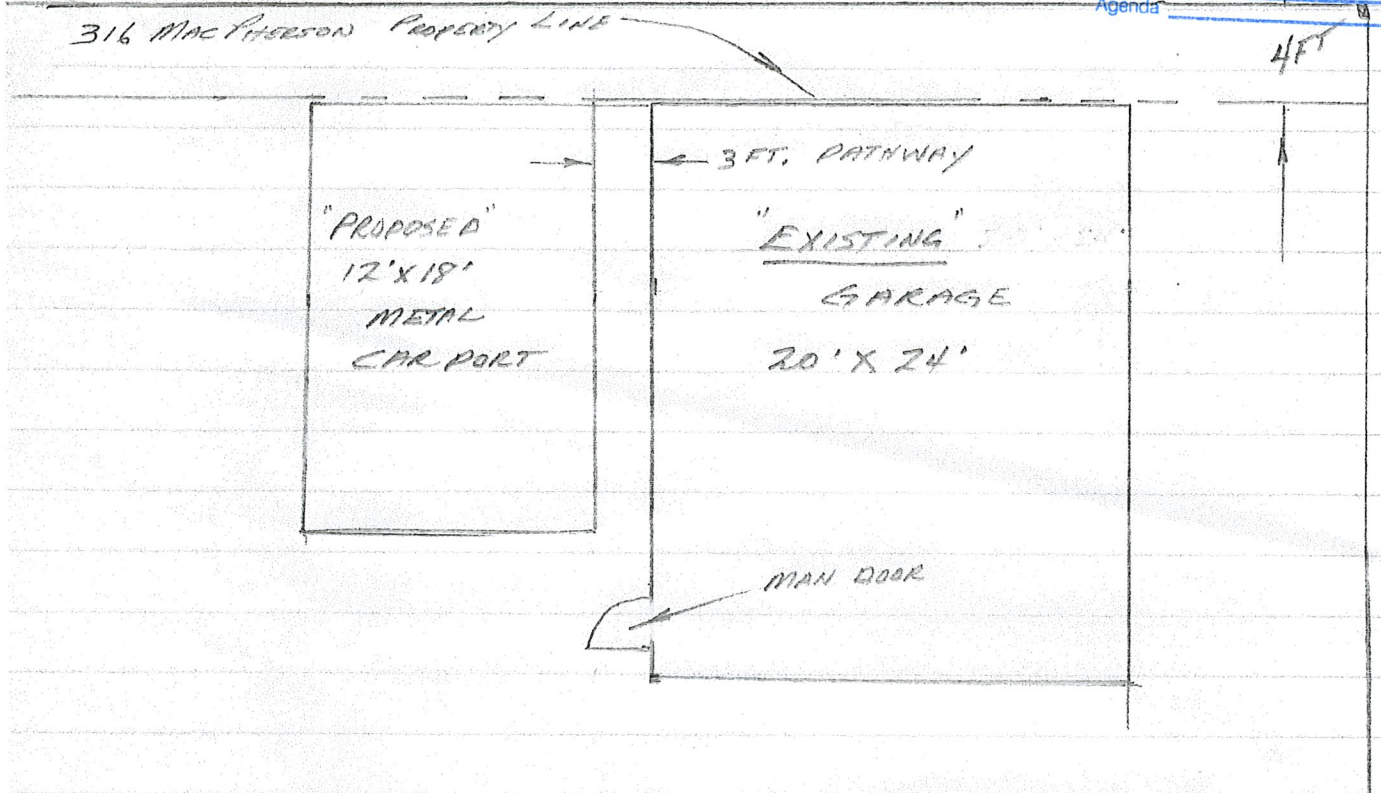 Agenda
316 MACPHERSON PROPERTY LINE
4FT
3 FT. PATHWAY
"PROPOSED"
12'X18'
METAL
CARPORT
"EXISTING"
GARAGE
20'X 24'
MAN DOOR